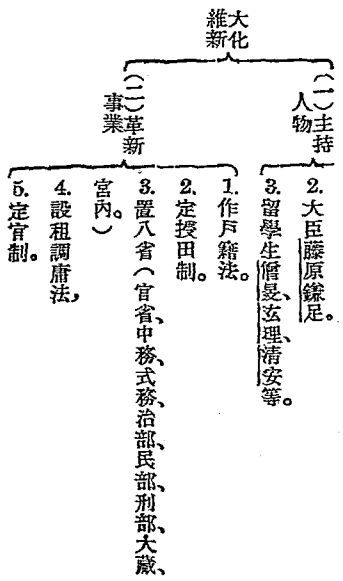 大化
維新
(一)主持
人物
2. 大臣藤原鎌足。
3. 留學生僧旻、玄理、清安等。
(二)革新
事業
1. 作戶籍法。
2. 定授田制。
3. 置八省(官省、中務、式務、治部、民部、刑部、大藏、
宮內。)
4. 設租調庸法,
5. 定官制。